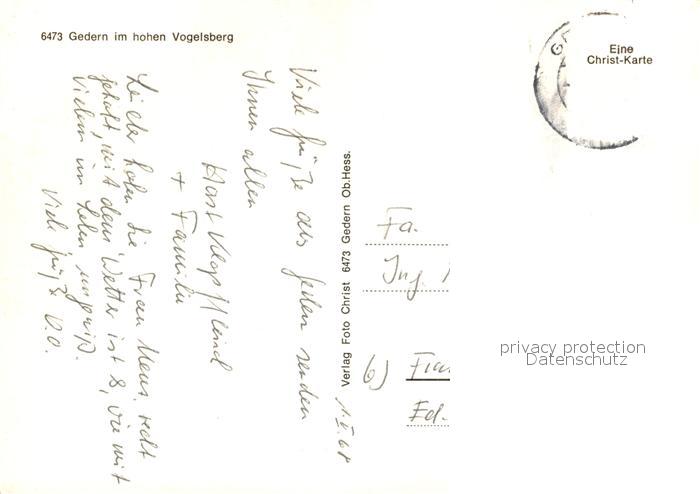 6473 Gedern im hohen Vogelsberg
Eine
Christ-Karte
Viele Grüße aus Gedern senden
Ihnen allen
Horst
+ Familie
Leider haben Sie, Frau recht
gehabt, mit dem Wetter ist es, wie mit
Vielem im Leben, ungewiß.
Viele Grüße D.O.
Verlag Foto Christ 6473 Gedern Ob.Hess.
Fa.
Ing.
6)
Ed.
privacy protection
Datenschutz